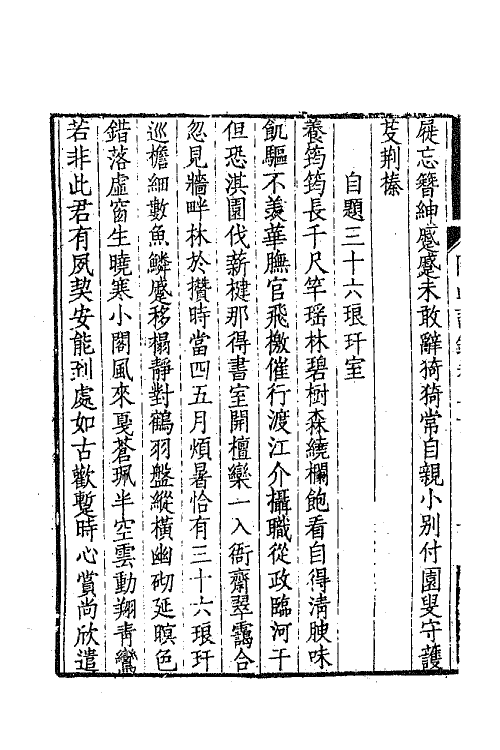 屣忘簪紳蹙蹙未敢辭猗猗常自親小别付園叟守護
芟荆榛
自題三十六琅玕室
養筠筠長千尺竿瑶林碧樹森繞欄飽看自得淸腴味
飢驅不羨華膴官飛檄催行渡江介攝職從政臨河干
但恐淇園伐薪楗那得書室開檀欒一入衙齋翠靄合
忽見牆畔林於攢時當四五月煩暑恰有三十六琅玕
巡檐細數魚鱗蹙移榻靜對鶴羽盤縱橫幽砌延暝色
錯落虛窗生曉寒小閣風來戛蒼珮半空雲動翔靑鸞
若非此君有夙契安能到處如古歡蹔時心賞尚欣遣